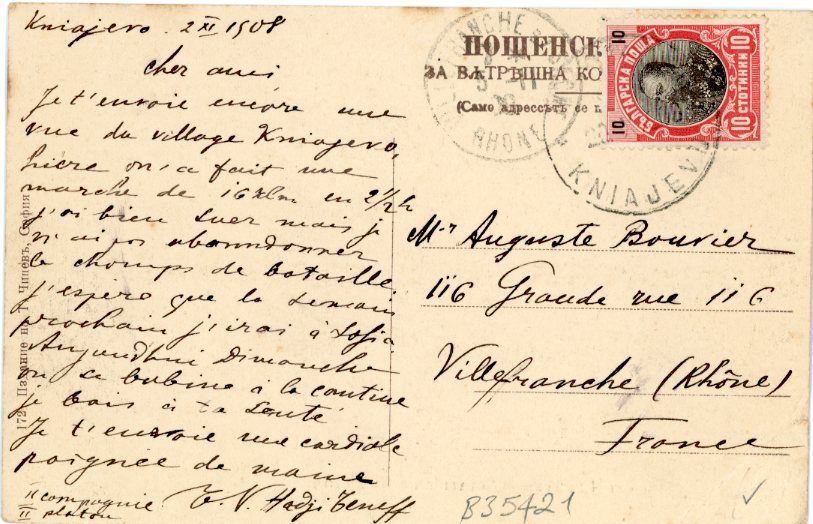 Kniajevo. 2 XI 1908
cher ami
Je t'envoie encore une
vue du village Kniajevo,
hière on'a fait une
marche de 16 klm en 2 1/2 h
j'ai bien suer mais je
n'ai pas abanndonner
le champs de bataille.
j'espere que la semain
prochain j'irai à Sofia.
Aujourdhui Dimanche
on a bubine à la cantine
je bois à ta santé
Je t'envoie une cardiale
poignée de maine
II compagnie
II platou
T. V. Hadji Teneff
172 Издание на Г. Чипевъ, София
ПОЩЕНСК
ЗА ВѪТРѢШНА КО
(Само адрессътъ се п
VILLEFRANCHE
RHONE
БЪЛГАРСКА ПОЩА
10
10
10 СТОТИНКИ 10
KNIAJEV
Mr Auguste Bouvier
116 Grande rue 116
Villefranche (Rhône)
France
B35421